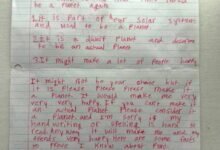 be a planet again
1. It is Part of our Solar System
and used to be a Planet
2. It is a dwarf Planet and deserve
to be an actual Planet
3. It might make a lot of People happy
It might not be your choice but if
it is Please Please Please make it
a Planet. It would make me very
very very happy if you can make it
an actual Planet Please consider it
a Planet and I'm sorry if my
handwriting or spelling is hard to
read Any way it will make me and my
very happy here are some facts
to Prove I know about Pluto